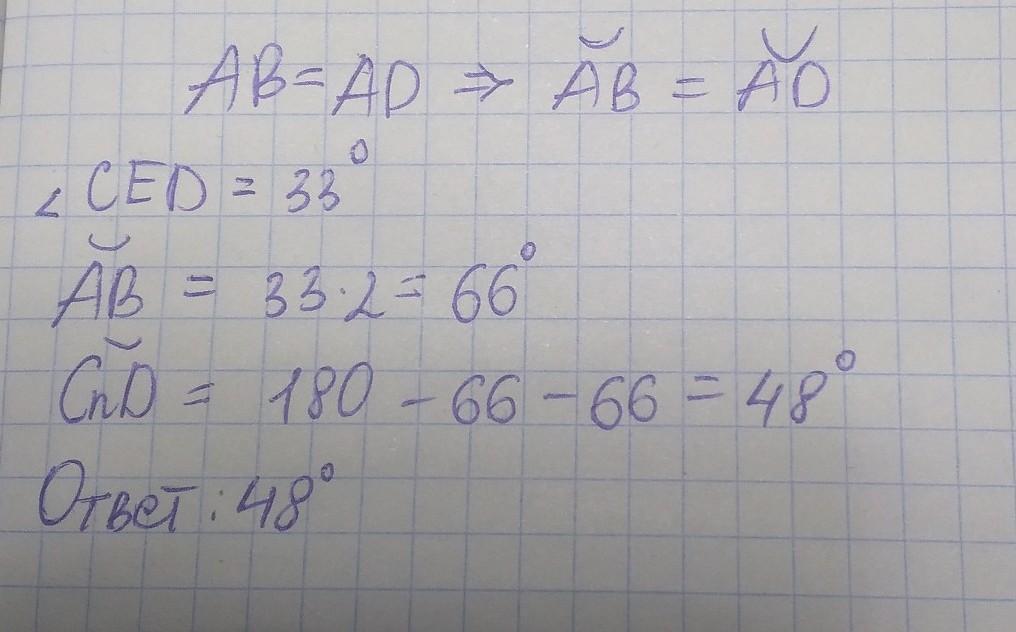 AB = AD ⇒ A͝B = A͝D
∠ CED = 33°
A͝B = 33·2 = 66°
C͝nD = 180 - 66 - 66 = 48°
Ответ: 48°